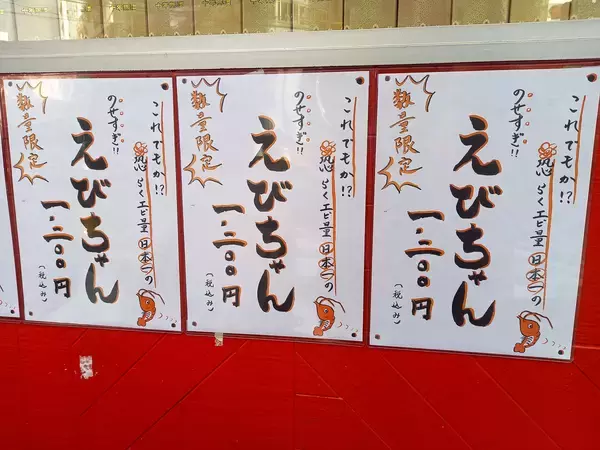 これでもか!?
恐らくエビ量日本一の
のせすぎ!!
えびちゃん
数量限定
一.二〇〇円
(税込み)
これでもか!?
恐らくエビ量日本一の
のせすぎ!!
えびちゃん
数量限定
一.二〇〇円
(税込み)
これでもか!?
恐らくエビ量日本一の
のせすぎ!!
えびちゃん
数量限定
一.二〇〇円
(税込み)